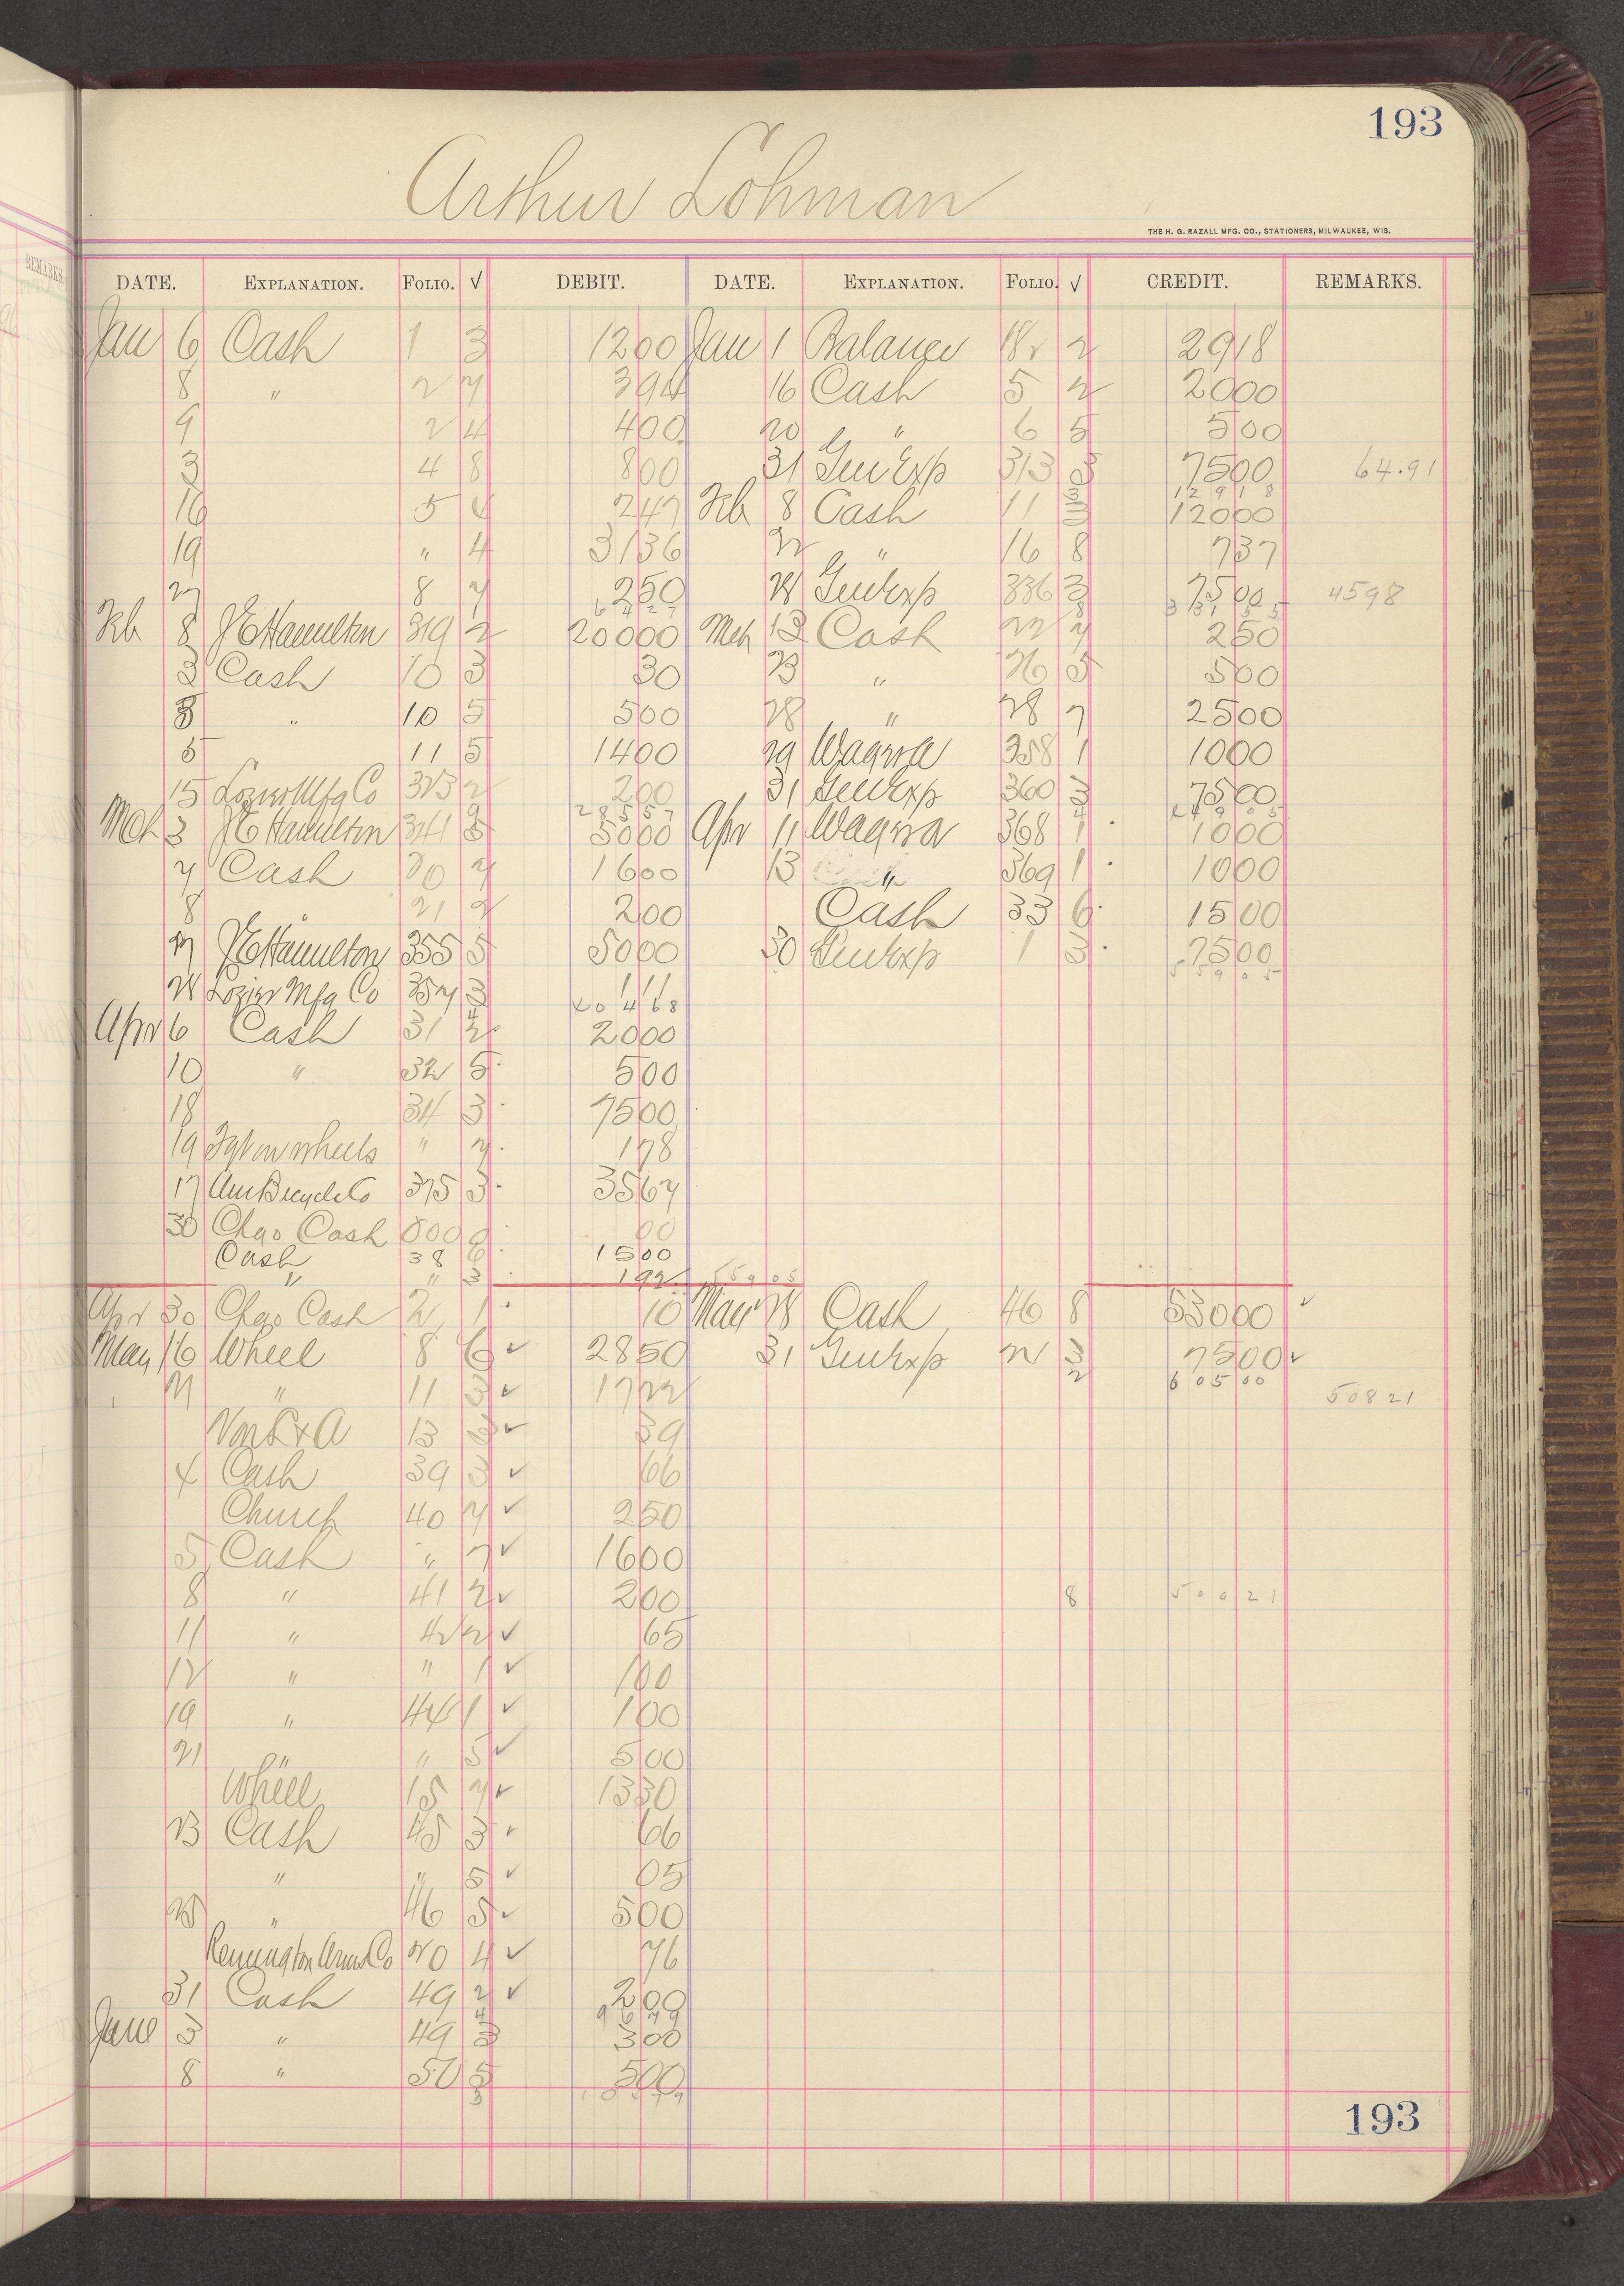 193
Arthur Lohman
THE H. G. RAZALL MFG. CO., STATIONERS, MILWAUKEE, WIS.
DATE. EXPLANATION. FOLIO. √ DEBIT. DATE. EXPLANATION. FOLIO. √ CREDIT. REMARKS.
Jan 6 Cash 1 3 1200 Jan 1 Balance 2 2918
8 " 2 394 16 Cash 5 2 2000
9 2 4 400 20 " 6 5 500
3 4 8 800 31 Gen Exp 313 3 7500 64.91
12918
16 5 4 247 Feb 8 Cash 11 3 12000
19 " 4 3136 22 " 16 8 737
27 8 250 28 Gen Exp 336 3 7500 4598
6427 33155
Feb 8 J E Hamilton 319 2 20000 Mch 13 Cash 22 250
3 Cash 10 3 30 23 " 26 5 500
8 " 10 5 500 28 " 28 7 2500
5 11 5 1400 29 Wagner 358 1 1000
15 Lozier Mfg Co 323 2 200 31 Gen Exp 360 3 7500
28557 44905
Mch 3 J E Hamilton 341 5 5000 Apr 11 Wagner 368 1 1000
Cash 20 1600 13 " 369 1 1000
8 " 21 2 200 Cash 33 6 1500
27 J E Hamilton 355 5 5000 30 Gen Exp 1 3 7500
55905
28 Lozier Mfg Co 357 3 111
40468
Apr 6 Cash 31 2 2000
10 " 32 5 500
18 34 3 7500
19 Fgt on wheels " 178
17 Am Bicycle Co 375 3 3567
30 Chgo Cash 500 00
Cash 38 6 1500
" " 3 192 55905
Apr 30 Chgo Cash 2 1 10 May 28 Cash 46 8 53000 ✓
May 16 Wheel 8 6 ✓ 2850 31 Gen Exp 22 3 7500 ✓
2 60500
21 " 11 3 ✓ 1722 50821
13 ✓ 39
4 Cash 39 3 ✓ 66
Church 40 ✓ 250
5 Cash " 7 ✓ 1600
8 " 41 2 ✓ 200 8 50021
11 " 42 2 ✓ 65
12 " " 1 ✓ 100
19 " 44 1 ✓ 100
21 " " 5 ✓ 500
Wheel 15 ✓ 1330
23 Cash 45 3 ✓ 66
" " 5 ✓ 05
25 " 46 5 ✓ 500
Remington Arms Co 20 4 ✓ 76
31 Cash 49 2 ✓ 200
9679
June 3 " 49 3 300
8 " 50 5 500
193